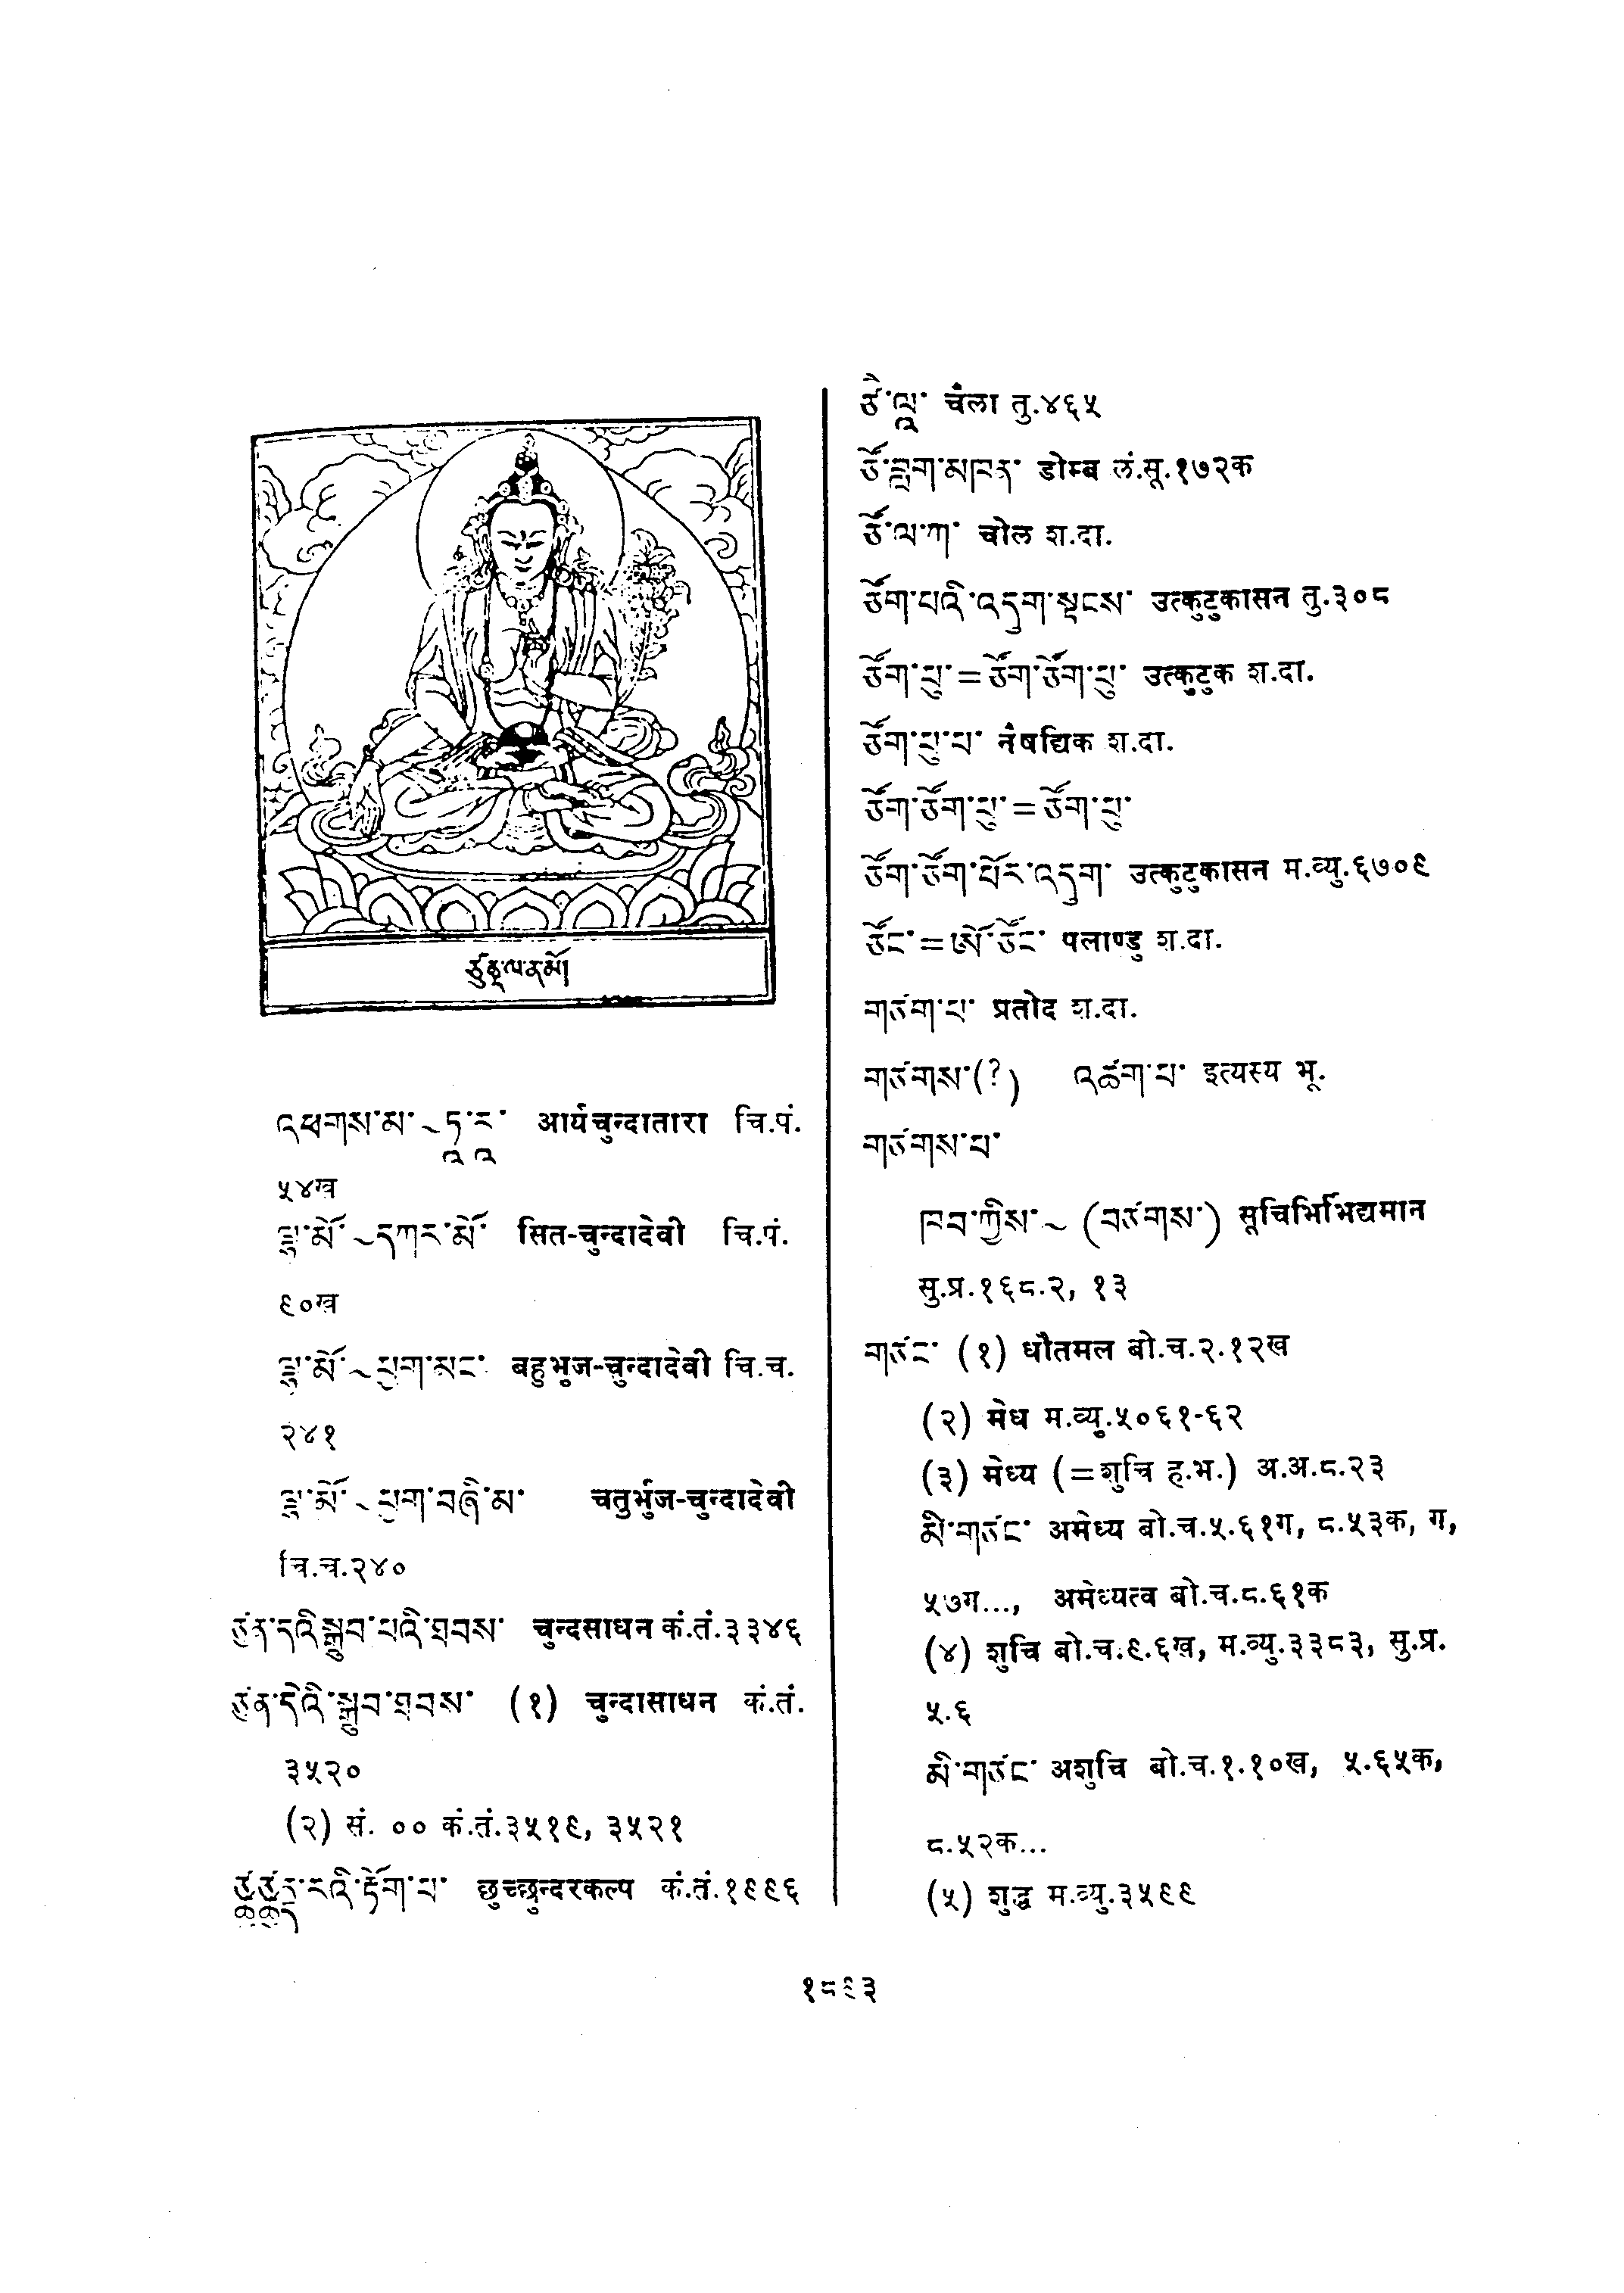 ཙུནྡ་ལ་ན་མོ།
འཕགས་མ་~ཏཱ་རཱ་ आर्यचुन्दातारा चि.पं.
५४ख
ལྷ་མོ་~དཀར་མོ་ सित-चुन्दादेवी चि.पं.
९०ख
ལྷ་མོ་~ཕྱག་མང་ बहुभुज-चुन्दादेवी चि.च.
२४१
ལྷ་མོ་~ཕྱག་བཞི་མ་ चतुर्भुज-चुन्दादेवी
चि.च.२४०
ཙུན་དའི་སྒྲུབ་པའི་ཐབས་ चुन्दसाधन कं.तं.३३४६
ཙུན་དེའི་སྒྲུབ་ཐབས་ (१) चुन्दासाधन कं.तं.
३५२०
(२) सं. ०० कं.तं.३५१९, ३५२१
छुच्छुन्दरकल्प कं.तं.१९९६
ཙེ་ལཱ་ चेला तु.४६५
ཙོ་བླག་མཁན་ डोम्ब लं.सू.१७२क
ཙོ་ལ་ཀ་ चोल श.दा.
ཙོག་པའི་འདུག་སྟངས་ उत्कुटुकासन तु.३०८
ཙོག་པུ་=ཙོག་ཙོག་པུ་ उत्कुटुक श.दा.
ཙོག་པུ་པ་ नैषद्यिक श.दा.
ཙོག་ཙོག་པུ་=ཙོག་པུ་
ཙོག་ཙོག་པོར་འདུག་ उत्कुटुकासन म.व्यु.६७०९
ཙོང་=ཨོ་ཙོང་ पलाण्डु श.दा.
གཙག་པ་ प्रतोद श.दा.
གཙགས་(?) འཚག་པ་ इत्यस्य भू.
གཙགས་པ་
ཁབ་ཀྱིས་~ (བཙགས་) सूचिभिर्भिद्यमान
सु.प्र.१६८.२, १३
གཙང་ (१) धौतमल बो.च.२.१२ख
(२) मेध म.व्यु.५०६१-६२
(३) मेध्य (=शुचि ह.भ.) अ.अ.८.२३
མི་གཙང་ अमेध्य बो.च.५.६१ग, ८.५३क, ग,
५७ग..., अमेध्यत्व बो.च.८.६१क
(४) शुचि बो.च.९.६ख, म.व्यु.३३८३, सु.प्र.
५.६
མི་གཙང་ अशुचि बो.च.१.१०ख, ५.६५क,
८.५२क...
(५) शुद्ध म.व्यु.३५९९
१८९३